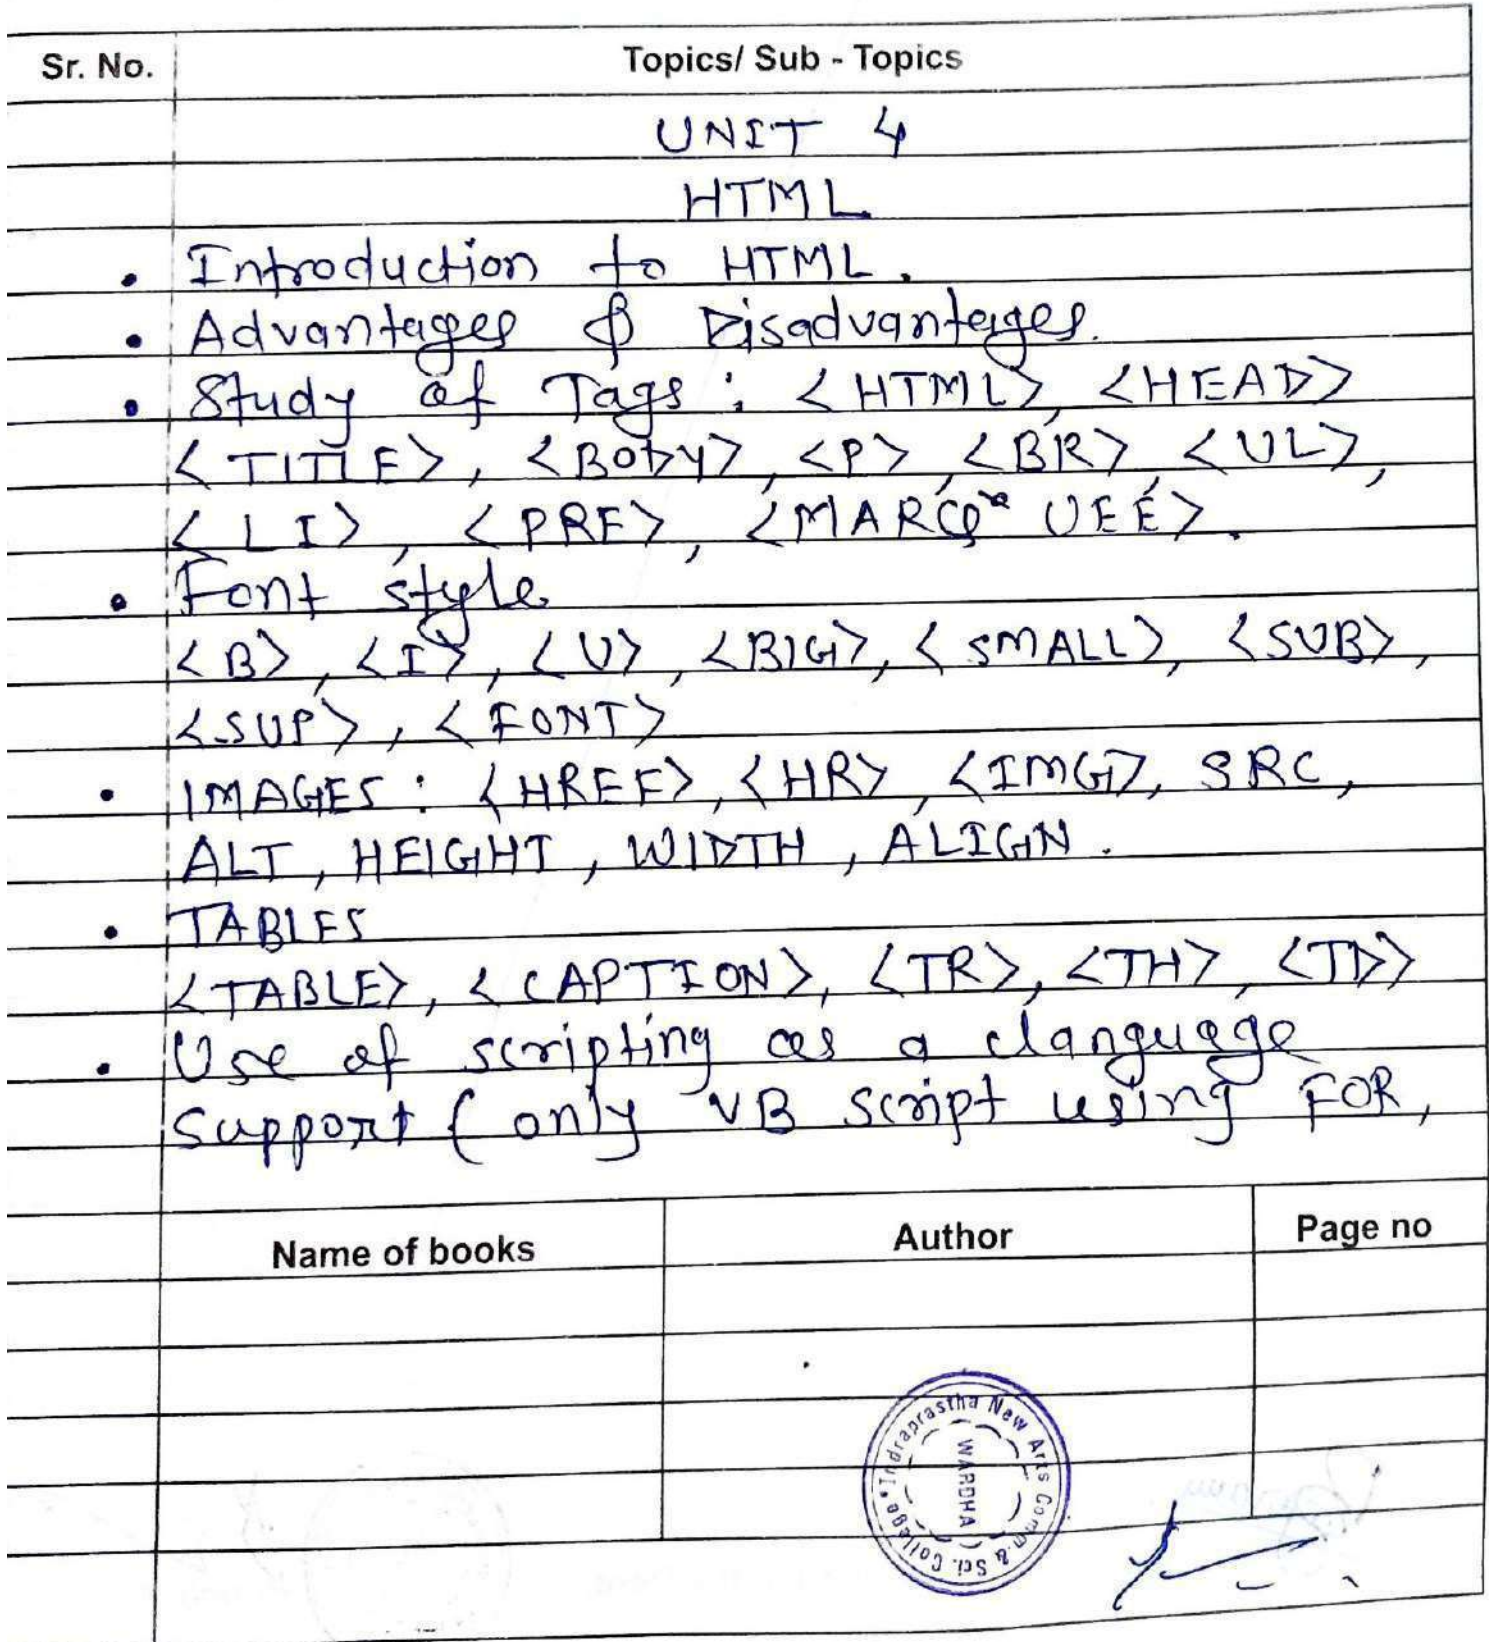 Sr. No. Topics/ Sub - Topics
UNIT 4
HTML
• Introduction to HTML.
• Advantages & Disadvantages.
• Study of Tags : <HTML>, <HEAD>
<TITLE>, <BODY>, <P>, <BR>, <UL>,
<LI>, <PRE>, <MARQUEE>.
• Font style
<B>, <I>, <U>, <BIG>, <SMALL>, <SUB>,
<SUP>, <FONT>
• IMAGES : <HREF>, <HR>, <IMG>, SRC,
ALT, HEIGHT, WIDTH, ALIGN.
• TABLES
<TABLE>, <CAPTION>, <TR>, <TH>, <TD>
• Use of scripting as a language
support (only VB script using FOR,
Name of books Author Page no
Indraprastha New Arts Comm. & Sci. College
WARDHA